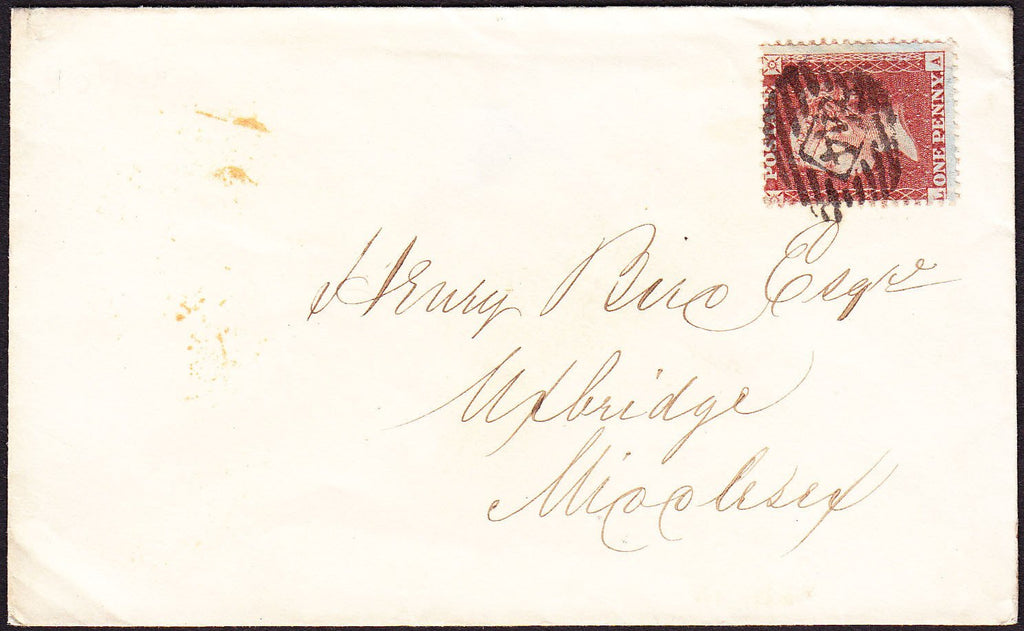 POSTAGE
ONE PENNY
L A
Henry Bird Esqre
Uxbridge
Middlesex